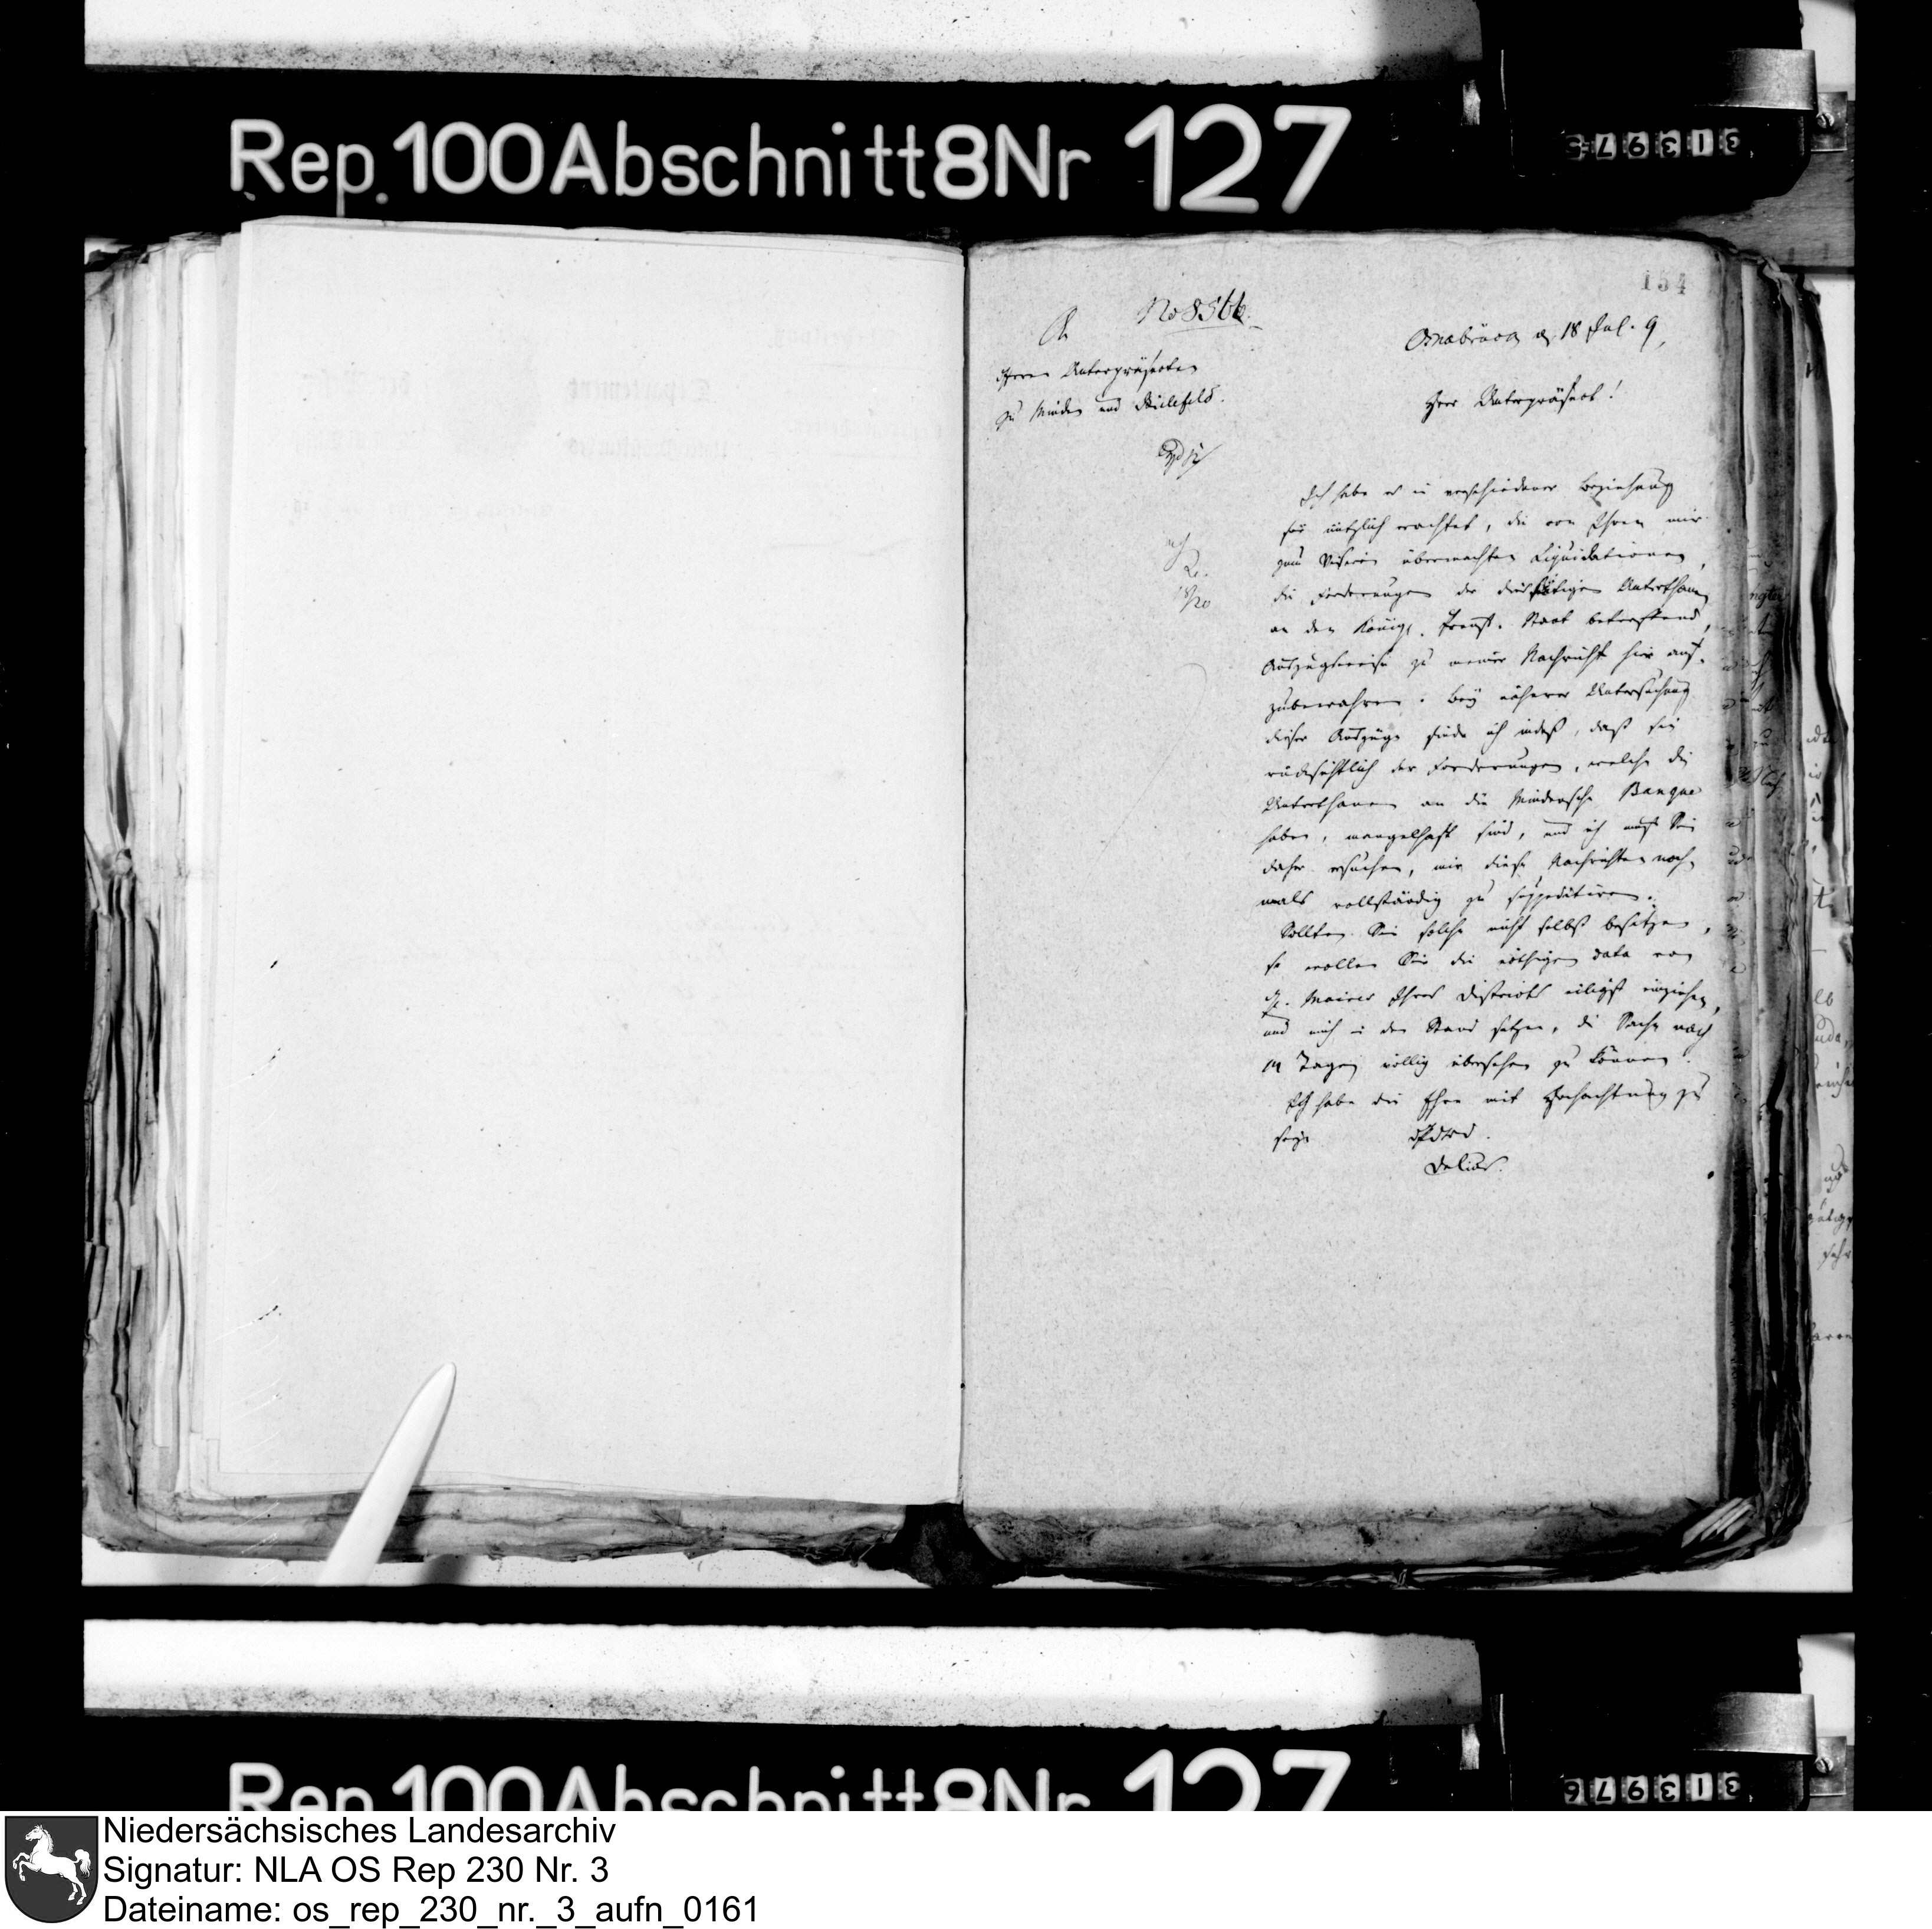 Rep. 100 Abschnitt 8 Nr 127
313975
154
No 8566.
An
Herrn Unterpräfecten
zu Minden und Bielefeld.
Osnabrück d. 18 Jul. 9,
Herr Unterpräfect!
Ich habe es in verschiedener Beziehung
für nützlich erachtet, die von Ihnen mir
zum Visiren übermachten Liquidationen,
die Forderungen der diesseitigen Unterthanen
an den Königl. Preuß. Staat betreffend,
Auszugsweise zu meiner Nachricht hier auf-
zubewahren. Bey näherer Untersuchung
dieser Auszüge finde ich indeß, daß sie
rücksichtlich der Forderungen, welche die
Unterthanen an die Mindensche Banque
haben, mangelhaft sind, und ich muß Sie
daher ersuchen, mir diese Nachrichten noch-
mals vollständig zu suppeditiren.
Sollten Sie solche nicht selbst besitzen,
so wollen Sie die nöthigen data von
H. Maires Ihres Districts eiligst einziehen,
und mich in den Stand setzen, die Sache nach
14 Tagen völlig übersehen zu können.
Ich habe die Ehre mit Hochachtung zu
seyn
dPdWD.
Delius.
Rep. 100 Abschnitt 8 Nr 127
313976
Niedersächsisches Landesarchiv
Signatur: NLA OS Rep 230 Nr. 3
Dateiname: os_rep_230_nr._3_aufn_0161